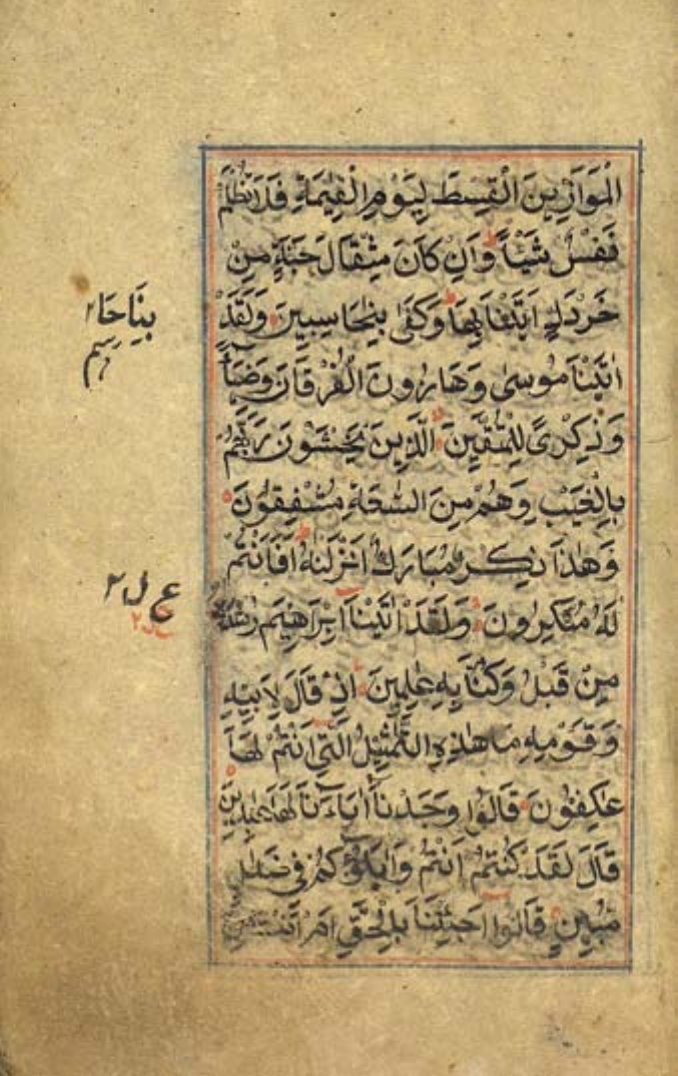 الْمَوَازِينَ الْقِسْطَ لِيَوْمِ الْقِيٰمَةِ فَلَا تُظْلَمُ
نَفْسٌ شَيْئًا وَاِنْ كَانَ مِثْقَالَ حَبَّةٍ مِنْ
خَرْدَلٍ اَتَيْنَا بِهَا وَكَفٰى بِنَا حَاسِبِينَ وَلَقَدْ
اٰتَيْنَا مُوسٰى وَهَارُونَ الْفُرْقَانَ وَضِيَآءً
وَذِكْرًى لِلْمُتَّقِينَ الَّذِينَ يَخْشَوْنَ رَبَّهُمْ
بِالْغَيْبِ وَهُمْ مِنَ السَّاعَةِ مُشْفِقُونَ
وَهٰذَا ذِكْرٌ مُبَارَكٌ اَنْزَلْنٰهُ اَفَاَنْتُمْ
لَهُ مُنْكِرُونَ وَلَقَدْ اٰتَيْنَا اِبْرَاهِيمَ رُشْدَهُ
مِنْ قَبْلُ وَكُنَّا بِهِ عٰلِمِينَ اِذْ قَالَ لِاَبِيهِ
وَقَوْمِهِ مَا هٰذِهِ التَّمٰثِيلُ الَّتِي اَنْتُمْ لَهَا
عٰكِفُونَ قَالُوا وَجَدْنَا اٰبَآءَنَا لَهَا عٰبِدِينَ
قَالَ لَقَدْ كُنْتُمْ اَنْتُمْ وَاٰبَاؤُكُمْ فِي ضَلٰلٍ
مُبِينٍ قَالُوا اَجِئْتَنَا بِالْحَقِّ اَمْ اَنْتَ مِنَ
بِنَا حَا
ع ل ٢